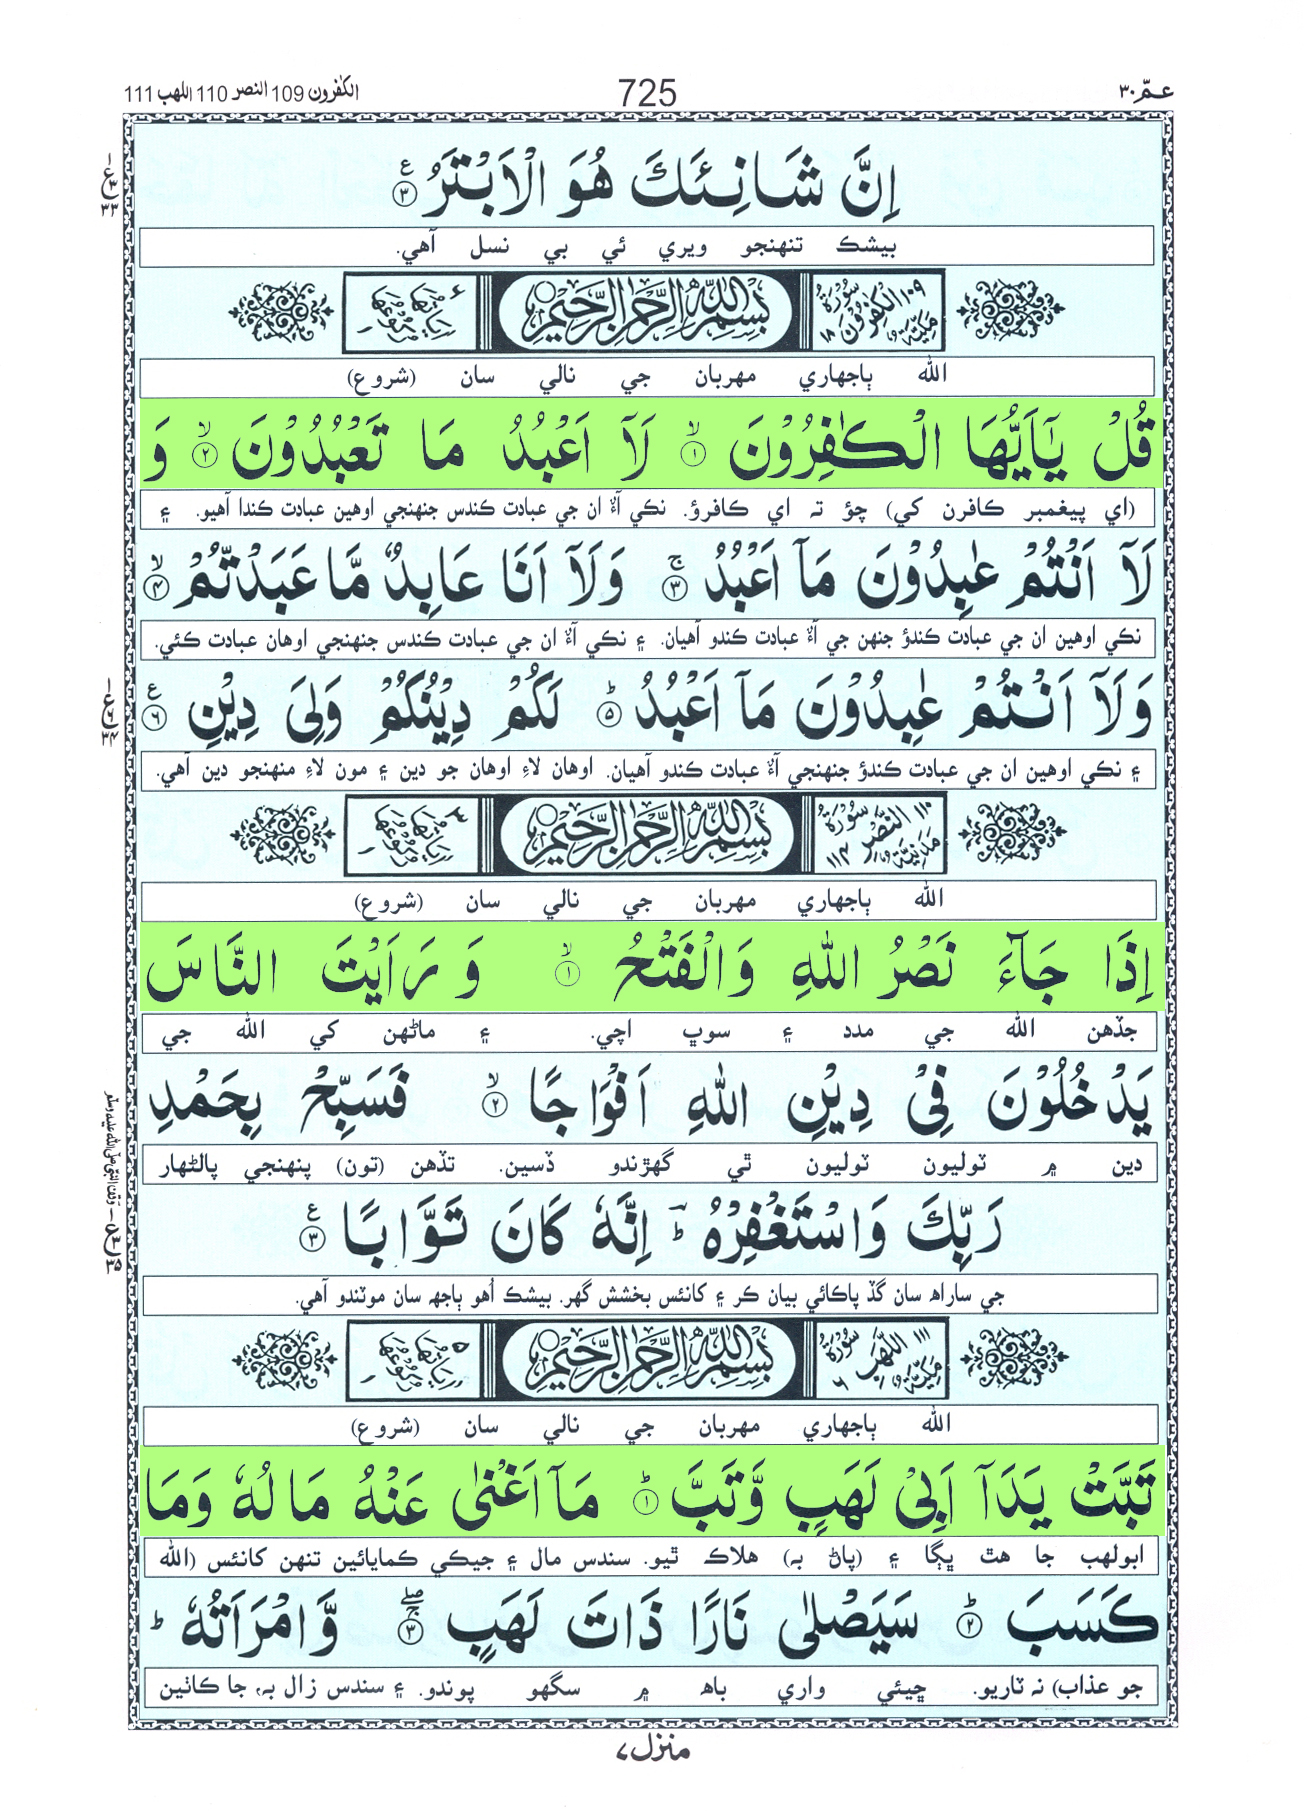 الكٰفرون 109 النصر 110 اللهب 111
725
عمّ ٣٠
اِنَّ شَانِئَكَ هُوَ الْاَبْتَرُ ٣ ع
بيشڪ تنهنجو ويري ئي بي نسل آهي.
سُوْرَةُ الْكٰفِرُوْنَ مَكِّيَّةٌ ١٠٩ ١٨
بِسْمِ اللّٰهِ الرَّحْمٰنِ الرَّحِيْمِ
اٰيَاتُهَا ٦ رُكُوْعُهَا ١
الله ٻاجهاري مهربان جي نالي سان (شروع)
قُلْ يٰٓاَيُّهَا الْكٰفِرُوْنَ ١ۙ لَآ اَعْبُدُ مَا تَعْبُدُوْنَ ٢ۙ وَ
(اي پيغمبر ڪافرن کي) چؤ ته اي ڪافرؤ. نڪي آءٌ ان جي عبادت ڪندس جنهنجي اوهين عبادت ڪندا آهيو. ۽
لَآ اَنْتُمْ عٰبِدُوْنَ مَآ اَعْبُدُ ٣ۚ وَلَآ اَنَا عَابِدٌ مَّا عَبَدْتُّمْ ٤ۙ
نڪي اوهين ان جي عبادت ڪندؤ جنهن جي آءٌ عبادت ڪندو آهيان. ۽ نڪي آءٌ ان جي عبادت ڪندس جنهنجي اوهان عبادت ڪئي.
وَلَآ اَنْتُمْ عٰبِدُوْنَ مَآ اَعْبُدُ ٥ؕ لَكُمْ دِيْنُكُمْ وَلِيَ دِيْنِ ٦ ع
۽ نڪي اوهين ان جي عبادت ڪندؤ جنهنجي آءٌ عبادت ڪندو آهيان. اوهان لاءِ اوهان جو دين ۽ مون لاءِ منهنجو دين آهي.
سُوْرَةُ النَّصْرِ مَدَنِيَّةٌ ١١٠ ١١٤
بِسْمِ اللّٰهِ الرَّحْمٰنِ الرَّحِيْمِ
اٰيَاتُهَا ٣ رُكُوْعُهَا ١
الله ٻاجهاري مهربان جي نالي سان (شروع)
اِذَا جَآءَ نَصْرُ اللّٰهِ وَالْفَتْحُ ١ۙ وَ رَاَيْتَ النَّاسَ
جڏهن الله جي مدد ۽ سوڀ اچي. ۽ ماڻهن کي الله جي
يَدْخُلُوْنَ فِيْ دِيْنِ اللّٰهِ اَفْوَاجًا ٢ۙ فَسَبِّحْ بِحَمْدِ
دين ۾ ٽوليون ٽوليون ٿي گهڙندو ڏسين. تڏهن (تون) پنهنجي پالڻهار
رَبِّكَ وَاسْتَغْفِرْهُ ؕؔ اِنَّهٗ كَانَ تَوَّابًا ٣ ع
جي ساراھ سان گڏ پاڪائي بيان ڪر ۽ کانئس بخشش گهر. بيشڪ اُهو ٻاجھ سان موٽندو آهي.
سُوْرَةُ اللَّهَبِ مَكِّيَّةٌ ١١١ ٦
بِسْمِ اللّٰهِ الرَّحْمٰنِ الرَّحِيْمِ
اٰيَاتُهَا ٥ رُكُوْعُهَا ١
الله ٻاجهاري مهربان جي نالي سان (شروع)
تَبَّتْ يَدَآ اَبِيْ لَهَبٍ وَّتَبَّ ١ؕ مَآ اَغْنٰى عَنْهُ مَالُهٗ وَمَا
ابولهب جا هٿ ڀڳا ۽ (پاڻ به) هلاڪ ٿيو. سندس مال ۽ جيڪي ڪمايائين تنهن کانئس (الله
كَسَبَ ٢ؕ سَيَصْلٰى نَارًا ذَاتَ لَهَبٍ ٣ۚۖ وَّامْرَاَتُهٗ ؕ
جو عذاب) نه ٽاريو. ڄيئي واري باھ ۾ سگهو پوندو. ۽ سندس زال به، جا ڪاٺين
منزل ٧